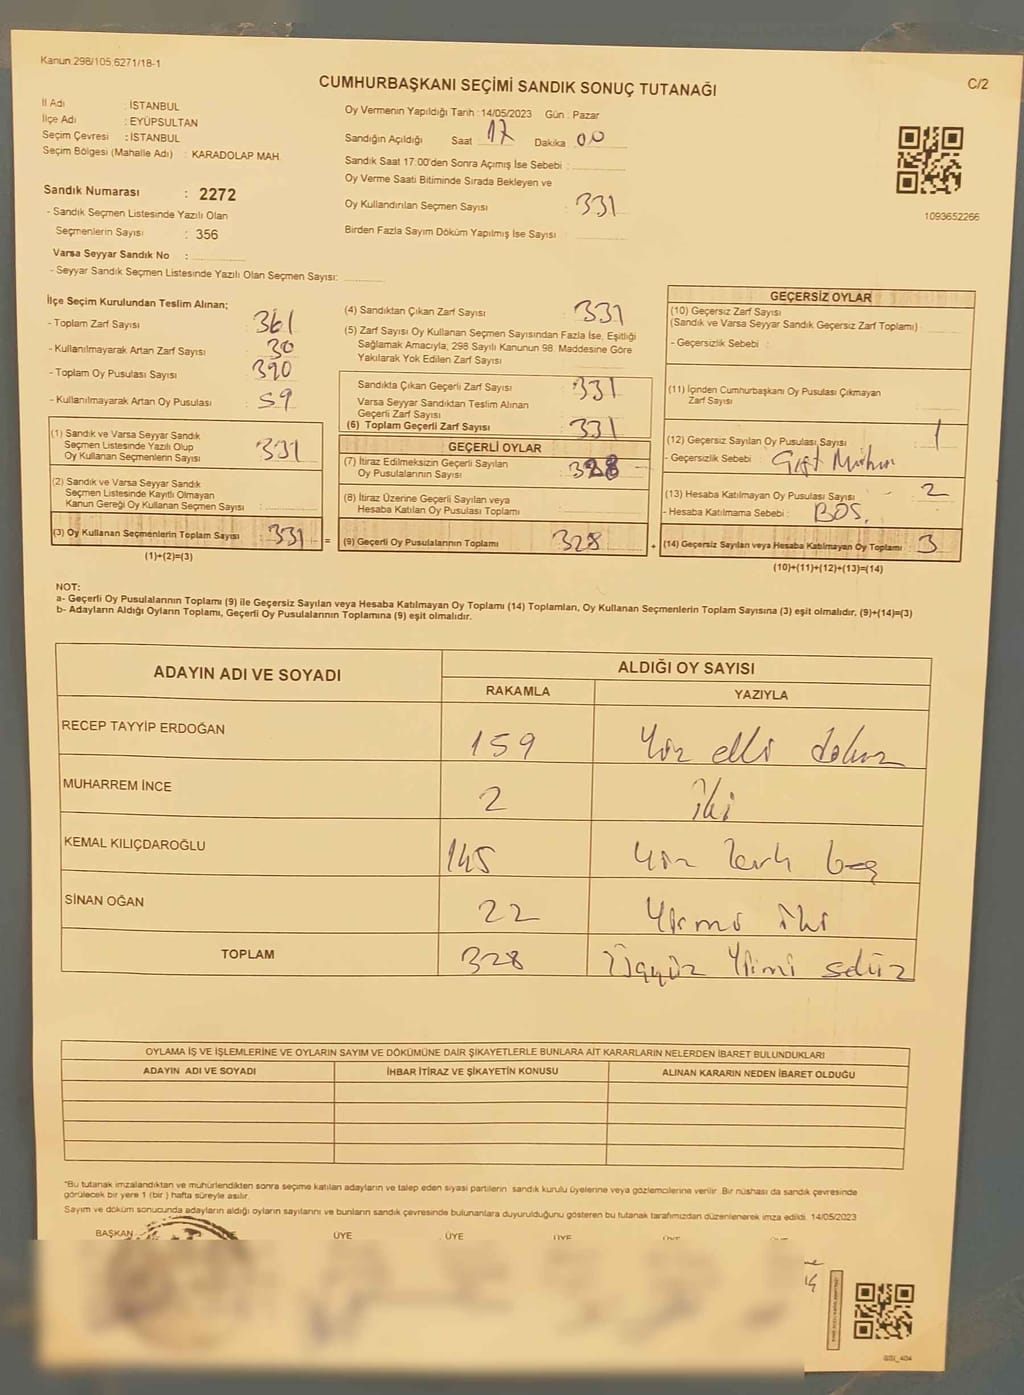 Kanun 298/105,6271/18-1
CUMHURBAŞKANI SEÇİMİ SANDIK SONUÇ TUTANAĞI
C/2
İl Adı : İSTANBUL
İlçe Adı : EYÜPSULTAN
Seçim Çevresi : İSTANBUL
Seçim Bölgesi (Mahalle Adı) : KARADOLAP MAH.
Sandık Numarası : 2272
- Sandık Seçmen Listesinde Yazılı Olan
Seçmenlerin Sayısı : 356
Varsa Seyyar Sandık No :
- Seyyar Sandık Seçmen Listesinde Yazılı Olan Seçmen Sayısı:
Oy Vermenin Yapıldığı Tarih : 14/05/2023 Gün : Pazar
Sandığın Açıldığı Saat 17 Dakika 00
Sandık Saat 17:00'den Sonra Açımış İse Sebebi :
Oy Verme Saati Bitiminde Sırada Bekleyen ve
Oy Kullandırılan Seçmen Sayısı : 331
Birden Fazla Sayım Döküm Yapılmış İse Sayısı :
1093652266
İlçe Seçim Kurulundan Teslim Alınan;
- Toplam Zarf Sayısı : 361
- Kullanılmayarak Artan Zarf Sayısı : 30
- Toplam Oy Pusulası Sayısı : 390
- Kullanılmayarak Artan Oy Pusulası : 59
(1) Sandık ve Varsa Seyyar Sandık
Seçmen Listesinde Yazılı Olup
Oy Kullanan Seçmenlerin Sayısı : 331
(2) Sandık ve Varsa Seyyar Sandık
Seçmen Listesinde Kayıtlı Olmayan
Kanun Gereği Oy Kullanan Seçmen Sayısı :
(3) Oy Kullanan Seçmenlerin Toplam Sayısı : 331 =
(1)+(2)=(3)
(4) Sandıktan Çıkan Zarf Sayısı : 331
(5) Zarf Sayısı Oy Kullanan Seçmen Sayısından Fazla İse, Eşitliği
Sağlamak Amacıyla, 298 Sayılı Kanunun 98. Maddesine Göre
Yakılarak Yok Edilen Zarf Sayısı
Sandıkta Çıkan Geçerli Zarf Sayısı : 331
Varsa Seyyar Sandıktan Teslim Alınan
Geçerli Zarf Sayısı
(6) Toplam Geçerli Zarf Sayısı : 331
GEÇERLİ OYLAR
(7) İtiraz Edilmeksizin Geçerli Sayılan
Oy Pusulalarının Sayısı : 328
(8) İtiraz Üzerine Geçerli Sayılan veya
Hesaba Katılan Oy Pusulası Toplamı :
(9) Geçerli Oy Pusulalarının Toplamı : 328 +
GEÇERSİZ OYLAR
(10) Geçersiz Zarf Sayısı
(Sandık ve Varsa Seyyar Sandık Geçersiz Zarf Toplamı) :
- Geçersizlik Sebebi :
(11) İçinden Cumhurbaşkanı Oy Pusulası Çıkmayan
Zarf Sayısı
(12) Geçersiz Sayılan Oy Pusulası Sayısı : 1
- Geçersizlik Sebebi : Çift Mühür
(13) Hesaba Katılmayan Oy Pusulası Sayısı : 2
- Hesaba Katılmama Sebebi : BOŞ.
(14) Geçersiz Sayılan veya Hesaba Katılmayan Oy Toplamı : 3
(10)+(11)+(12)+(13)=(14)
NOT:
a- Geçerli Oy Pusulalarının Toplamı (9) ile Geçersiz Sayılan veya Hesaba Katılmayan Oy Toplamı (14) Toplamları, Oy Kullanan Seçmenlerin Toplam Sayısına (3) eşit olmalıdır, (9)+(14)=(3)
b- Adayların Aldığı Oyların Toplamı, Geçerli Oy Pusulalarının Toplamına (9) eşit olmalıdır.
ADAYIN ADI VE SOYADI
ALDIĞI OY SAYISI
RAKAMLA YAZIYLA
RECEP TAYYİP ERDOĞAN 159 Yüz elli dokuz
MUHARREM İNCE 2 İki
KEMAL KILIÇDAROĞLU 145 Yüz kırk beş
SİNAN OĞAN 22 Yirmi iki
TOPLAM 328 Üçyüz Yirmi sekiz
OYLAMA İŞ VE İŞLEMLERİNE VE OYLARIN SAYIM VE DÖKÜMÜNE DAİR ŞİKAYETLERLE BUNLARA AİT KARARLARIN NELERDEN İBARET BULUNDUKLARI
ADAYIN ADI VE SOYADI İHBAR İTİRAZ VE ŞİKAYETİN KONUSU ALINAN KARARIN NEDEN İBARET OLDUĞU
*Bu tutanak imzalandıktan ve mühürlendikten sonra seçime katılan adayların ve talep eden siyasi partilerin sandık kurulu üyelerine veya gözlemcilerine verilir. Bir nüshası da sandık çevresinde
görülecek bir yere 1 (bir) hafta süreyle asılır.
Sayım ve döküm sonucunda adayların aldığı oyların sayılarını ve bunların sandık çevresinde bulunanlara duyurulduğunu gösteren bu tutanak tarafımızdan düzenlenerek imza edildi. 14/05/2023
BAŞKAN ÜYE ÜYE ÜYE ÜYE